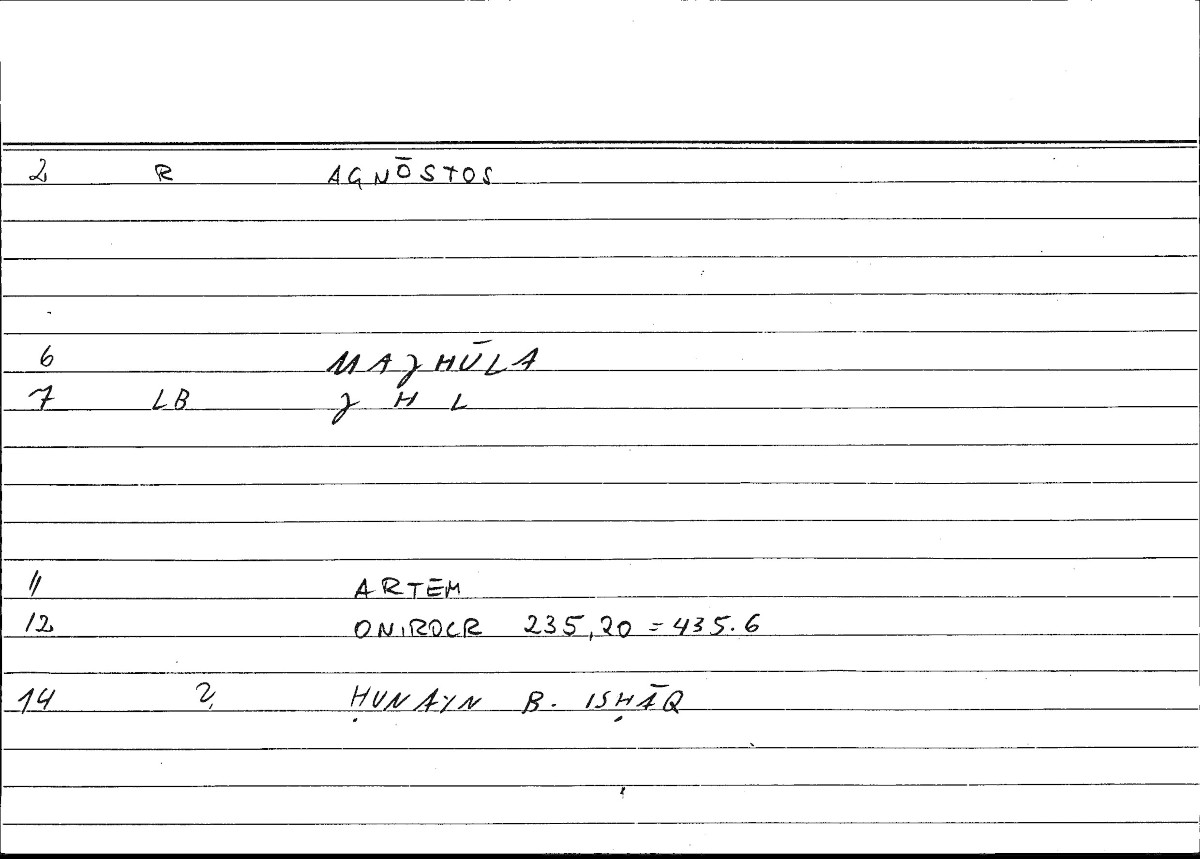 2 R AGNŌSTOS
6 MAJHŪLA
7 LB J H L
11 ARTEM
12 ONIROCR 235,20 = 435.6
14 2, ḤUNAYN B. ISḤĀQ